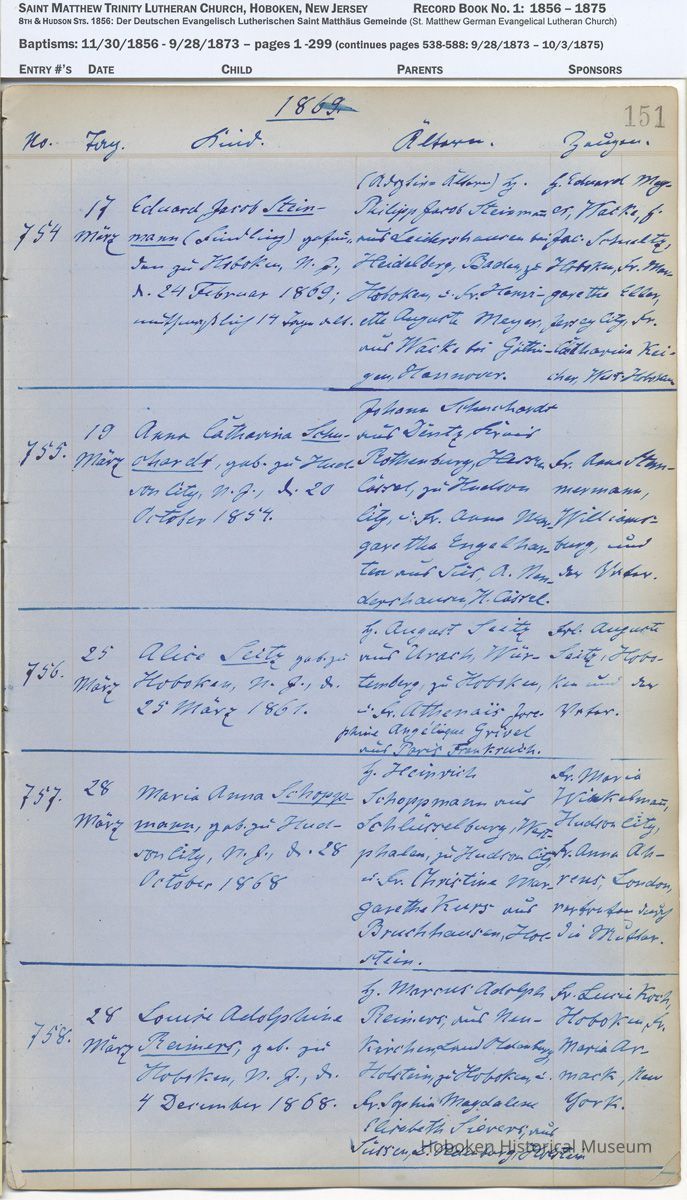 SAINT MATTHEW TRINITY LUTHERAN CHURCH, HOBOKEN, NEW JERSEY RECORD BOOK NO. 1: 1856 – 1875
8TH & HUDSON STS. 1856: Der Deutschen Evangelisch Lutherischen Saint Matthäus Gemeinde (St. Matthew German Evangelical Lutheran Church)
Baptisms: 11/30/1856 - 9/28/1873 – pages 1 -299 (continues pages 538-588: 9/28/1873 – 10/3/1875)
ENTRY #'S DATE CHILD PARENTS SPONSORS
1869.
151
No. Tag. Kind. Ältern. Zeugen.
754
17
März
Eduard Jacob Stein-
mann (Findling) gefun-
den zu Hoboken, N. J.,
d. 24 Februar 1869;
muthmaßlich 14 Tage alt.
(Adoptiv Ältern) H.
Philipp Jacob Steinmann
aus Leidershausen bei
Heidelberg, Baden, zu
Hoboken, u. Fr. Henri-
ette Auguste Meyer,
aus Wacke bei Göttin-
gen, Hannover.
H. Eduard Mey-
er, Wacke, H.
Jac. Schultz,
Hoboken, Fr. Mar-
garetha Eller,
Jersey City, Fr.
Catharina Rei-
cher, West Hoboken
755.
19
März
Anna Catharina Schu-
chardt, geb. zu Hud-
son City, N. J., d. 20
October 1854.
Johann Schuchardt
aus Dentz, Kreis
Rothenburg, Hessen
Cassel, zu Hudson
City, u. Fr. Anna Mar-
garetha Engelhar-
ten aus Süs, A. Nen-
dershausen, H. Cassel.
Fr. Anna Stem-
mermann,
Williams-
burg, und
der Vater.
756.
25
März
Alice Seitz geb. zu
Hoboken, N. J., d.
25 März 1861.
H. August Seitz
aus Urach, Wür-
temberg, zu Hoboken,
u. Fr. Athenais Jose-
phine Angélique Grivel
aus Paris Frankreich.
Frl. Auguste
Seitz, Hobo-
ken und der
Vater.
757.
28
März
Maria Anna Schopp-
mann, geb. zu Hud-
son City, N. J., d. 28
October 1868
H. Heinrich
Schoppmann aus
Schlüsselburg, West-
phalen, zu Hudson City
u. Fr. Christine Mar-
garethe Kurs aus
Bruchhausen, Hol-
stein.
Fr. Maria
Winkelmann,
Hudson City,
Fr. Anna Ah-
rens, London,
vertreten durch
die Mutter.
758.
28
März
Louise Adolphine
Reimers, geb. zu
Hoboken, N. J., d.
4 December 1868.
H. Marcus Adolph
Reimers, aus Neu-
kirchen, Land Oldenburg
Holstein, zu Hoboken, u.
Fr. Sophia Magdalene
Elisabeth Sievers, aus
Fr. Lucie Koch,
Hoboken, Fr.
Maria Ar-
mack, New
York.
Hoboken Historical Museum